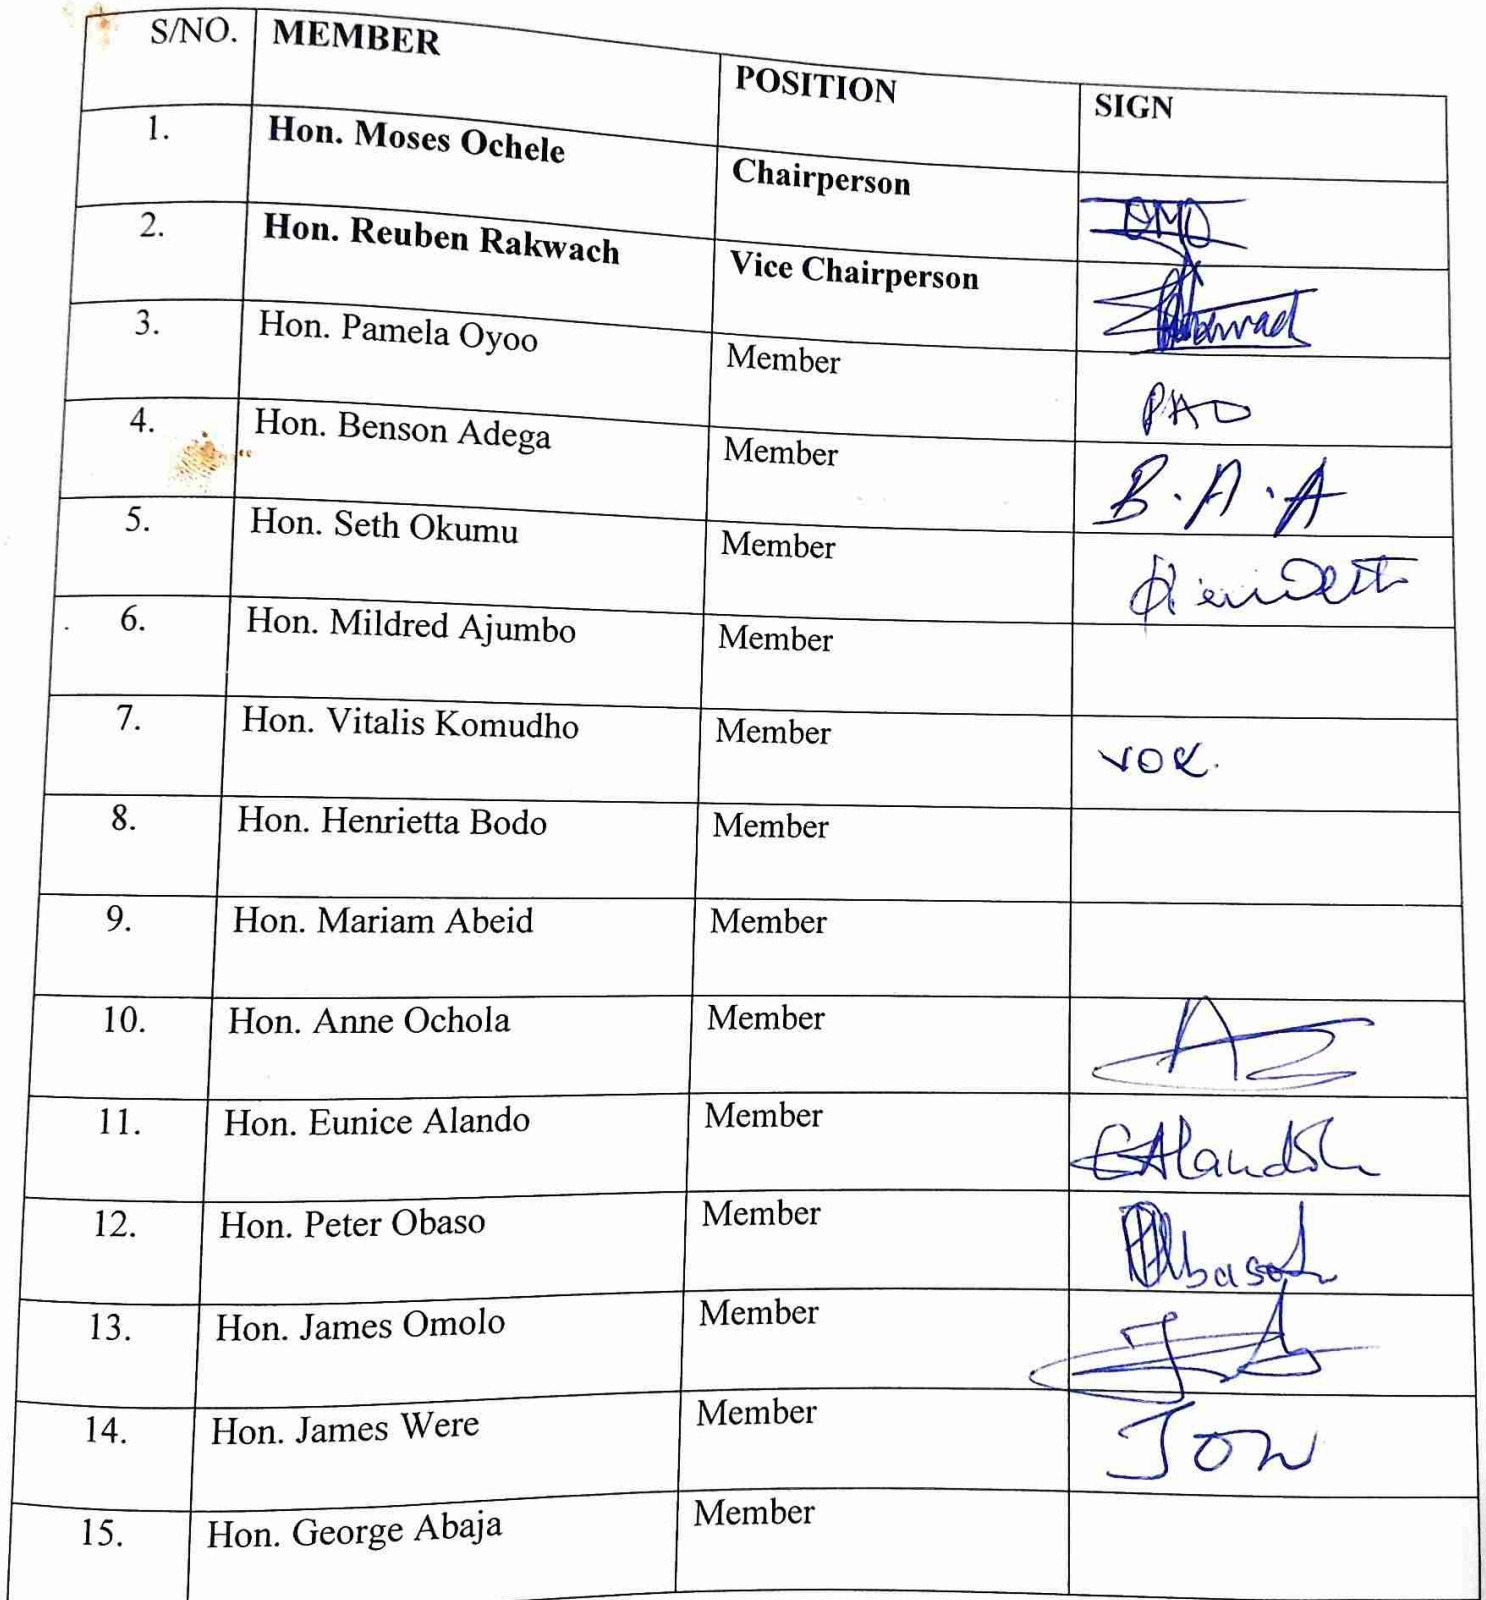 S/NO. MEMBER POSITION SIGN
1. Hon. Moses Ochele Chairperson
2. Hon. Reuben Rakwach Vice Chairperson
3. Hon. Pamela Oyoo Member PAO
4. Hon. Benson Adega Member B.A.A
5. Hon. Seth Okumu Member
6. Hon. Mildred Ajumbo Member
7. Hon. Vitalis Komudho Member VOK.
8. Hon. Henrietta Bodo Member
9. Hon. Mariam Abeid Member
10. Hon. Anne Ochola Member
11. Hon. Eunice Alando Member
12. Hon. Peter Obaso Member
13. Hon. James Omolo Member
14. Hon. James Were Member JOW
15. Hon. George Abaja Member